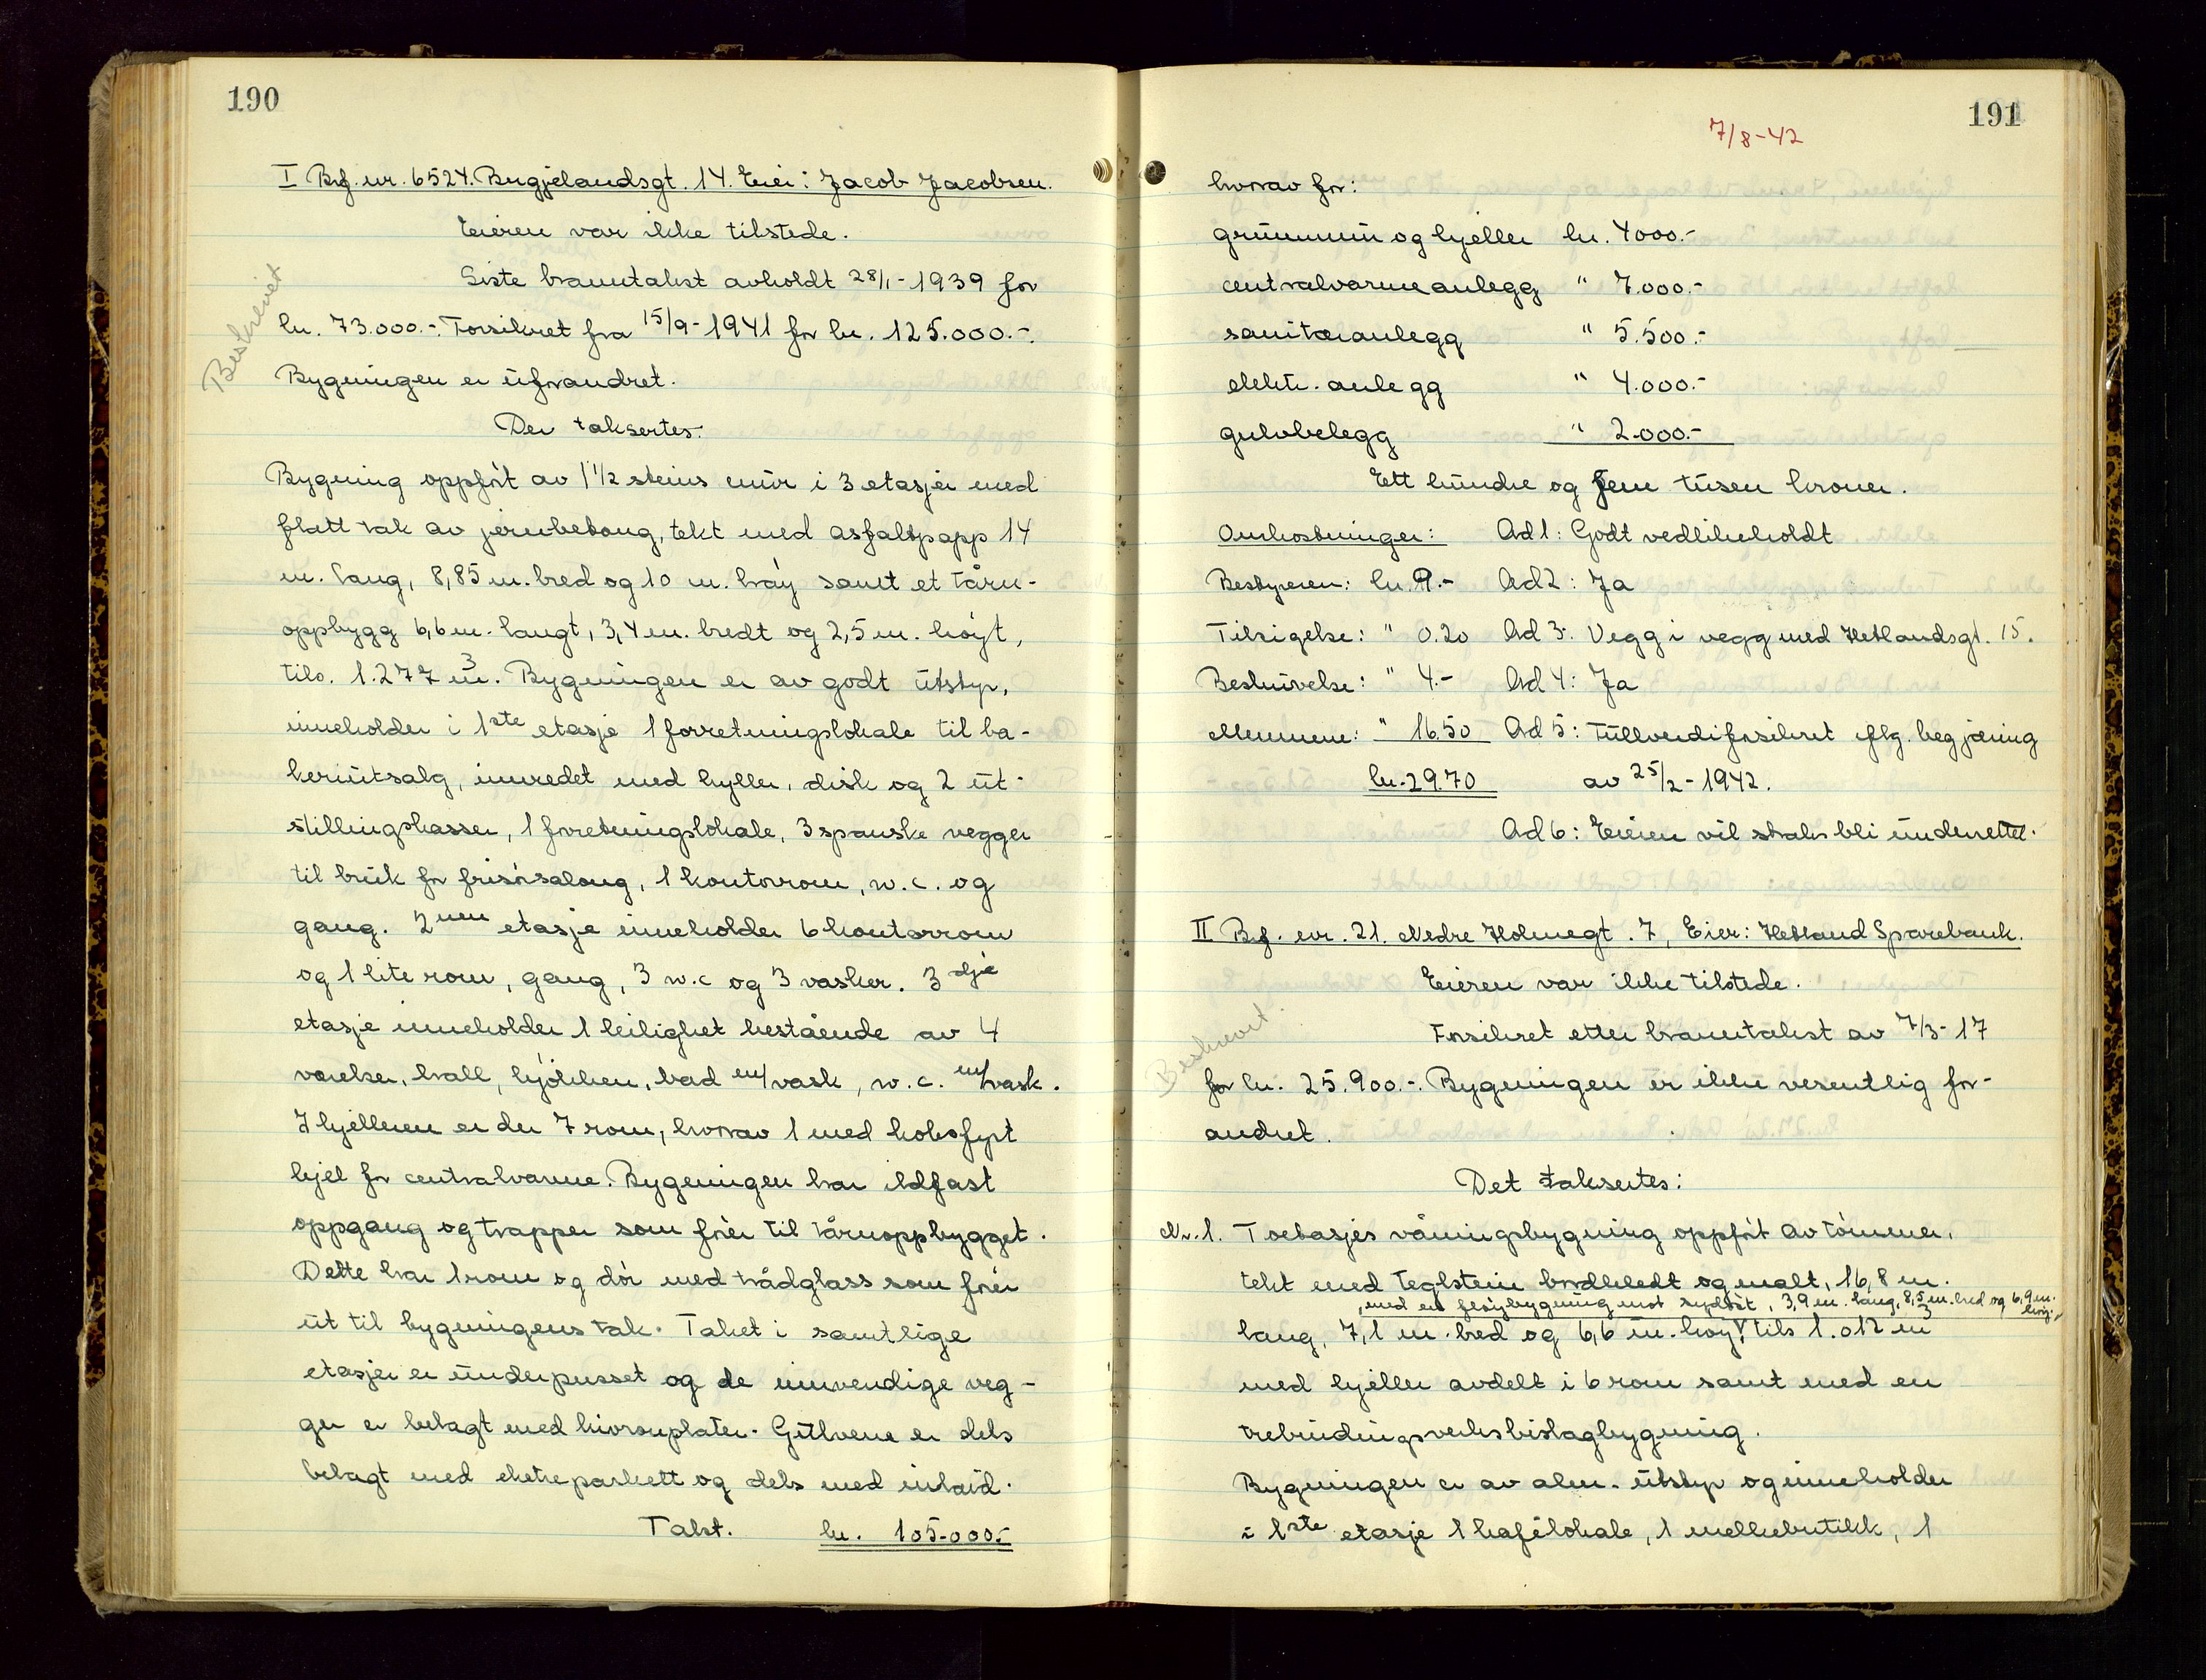 190
I Brf. nr. 6524. Bergjelandsgt. 14. Eier: Jacob Jacobsen.
Eieren var ikke tilstede.
Siste branntakst avholdt 28/1-1939 for
kr. 73.000.-. Forsikret fra 15/9-1941 for kr. 125.000.-.
Beskrevet
Bygningen er uforandret.
Der taksertes:
Bygning oppført av 1 1/2 steins mur i 3 etasjer med
flatt tak av jernbetong, tekt med asfaltpapp 14
m. lang, 8,85 m. bred og 10 m. høy samt et tårn-
oppbygg 6,6 m. langt, 3,4 m. bredt og 2,5 m. høyt,
tils. 1.277 m³. Bygningen er av godt utstyr,
inneholder i 1ste etasje 1 forretningslokale til ba-
kerutsalg, innredet med hyller, disk og 2 ut-
stillingskasser, 1 forretningslokale, 3 spanske vegger
til bruk for frisørsalong, 1 kontorrom, w.c. og
gang. 2nen etasje inneholder 6 kontorrom
og 1 lite rom, gang, 3 w.c og 3 vasker. 3dje
etasje inneholder 1 leilighet bestående av 4
værelser, hall, kjøkken, bad m/vask, w.c. m/vask.
I kjelleren er der 7 rom, hvorav 1 med koksfyrt
kjel for centralvarme. Bygningen har ildfast
oppgang og trapper som fører til tårnoppbygget.
Dette har 1 rom og dør med trådglass som fører
ut til bygningens tak. Taket i samtlige
etasjer er underpusset og de innvendige veg-
ger er belagt med hvoronplater. Gulvene er dels
belagt med eketreparkett og dels med inlaid.
Takst. kr. 105.000.-
191
7/8-42
hvorav for:
grunnmur og kjeller kr. 4000.-
centralvarmeanlegg " 7.000.-
sanitæranlegg " 5.500.-
elektr. anlegg " 4.000.-
gulvbelegg " 2.000.-
Ett hundre og fem tusen kroner.
Omkostninger: Ad 1: Godt vedlikeholdt
Bestyreren: kr. 9.- Ad 2: Ja
Tilsigelse: " 0.20 Ad 3: Vegg i vegg med Hetlandsgt. 15.
Beskrivelse: " 4.- Ad 4: Ja
Mennene: " 16.50 Ad 5: Fullverdiforsikret iflg. begjæring
kr. 29.70 av 25/2-1942.
Ad 6: Eieren vil straks bli underrettet.
II Brf. nr. 21. Nedre Holmegt. 7, Eier: Hetland Sparebank.
Eieren var ikke tilstede.
Beskrevet.
Forsikret etter branntakst av 7/3-17
for kr. 25.900.-. Bygningen er ikke vesentlig for-
andret.
Det taksertes:
Nr. 1. Toetasjes våningsbygning oppført av tømmer,
tekt med teglstein bordkledt og malt, 16,8 m.
, med en fløybygning mot sydøst, 3,9 m. lang, 8,5 m. bred og 6,9 m. høy,
lang, 7,1 m. bred og 6,6 m. høy, tils 1.012 m³
med kjeller avdelt i 6 rom samt med en
trebindingsverksbislagbygning.
Bygningen er av alm. utstyr og inneholder
i 1ste etasje 1 kafélokale, 1 melkebutikk, 1